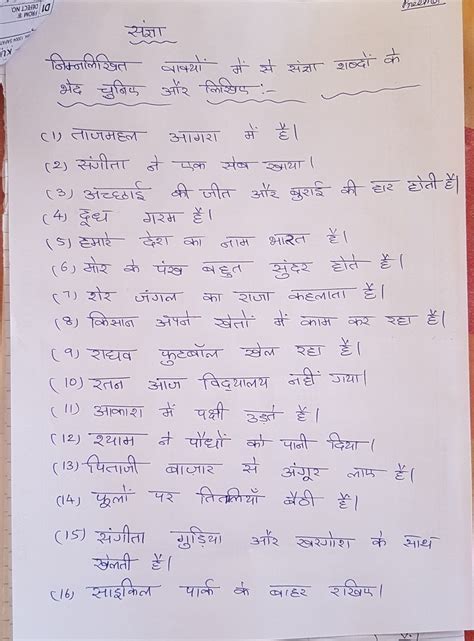 DI
DEFECT NO.
FROM &
संज्ञा
निम्नलिखित वाक्यों में से संज्ञा शब्दों के
भेद चुनिए और लिखिए :-
(1) ताजमहल आगरा में है।
(2) संगीता ने एक सेब खाया।
(3) अच्छाई की जीत और बुराई की हार होती है।
(4) दूध गरम है।
(5) हमारे देश का नाम भारत है।
(6) मोर के पंख बहुत सुंदर होते हैं।
(7) शेर जंगल का राजा कहलाता है।
(8) किसान अपने खेतों में काम कर रहा है।
(9) राघव फुटबॉल खेल रहा है।
(10) रतन आज विद्यालय नहीं गया।
(11) आकाश में पक्षी उड़ते हैं।
(12) श्याम ने पौधों को पानी दिया।
(13) पिताजी बाज़ार से अंगूर लाए हैं।
(14) फूलों पर तितलियाँ बैठी हैं।
(15) संगीता गुड़िया और खरगोश के साथ
खेलती है।
(16) साइकिल पार्क के बाहर रखिए।